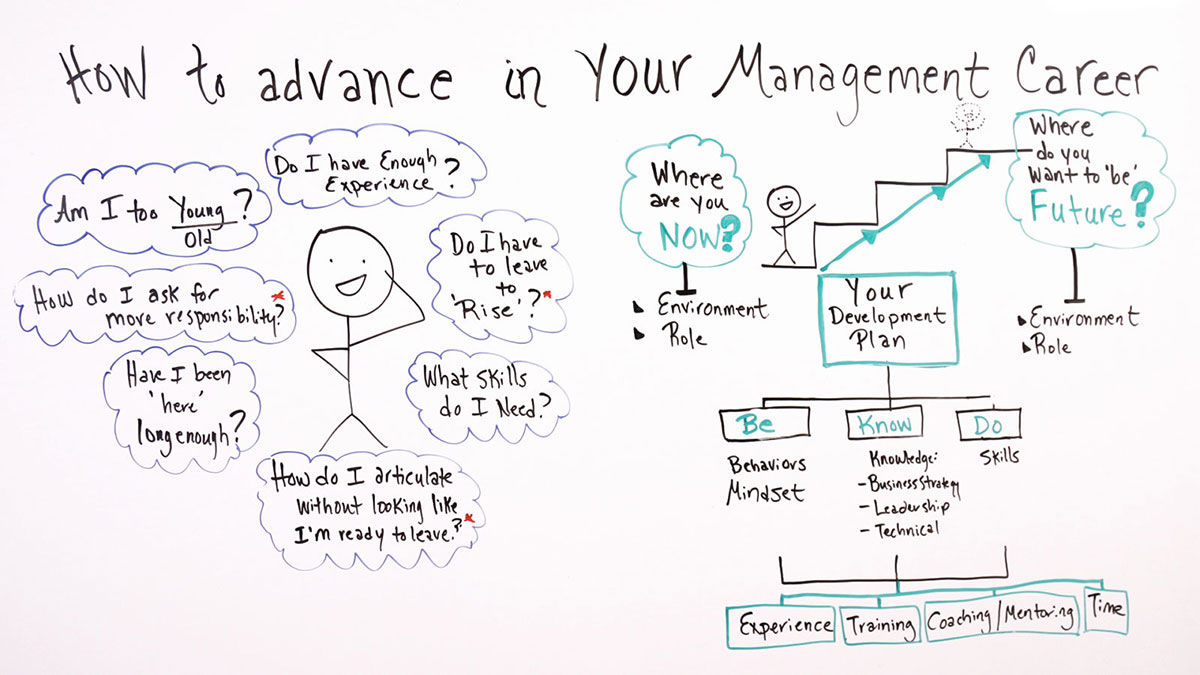 How to advance in Your Management Career
Do I have Enough
Experience?
Am I too Young?
Old
Do I have
to leave
to
'Rise'?*
How do I ask for *
more responsibility?
Have I been
'here'
long enough?
What skills
do I Need?
How do I articulate
without looking like
I'm ready to leave.?*
Where
are you
NOW?
Environment
Role
Where
do you
want to 'be'
Future?
Environment
Role
Your
Development
Plan
Be
Behaviors
Mindset
Know
Knowledge:
- Business Strategy
- Leadership
- Technical
Do
Skills
Experience
Training
Coaching/Mentoring
Time